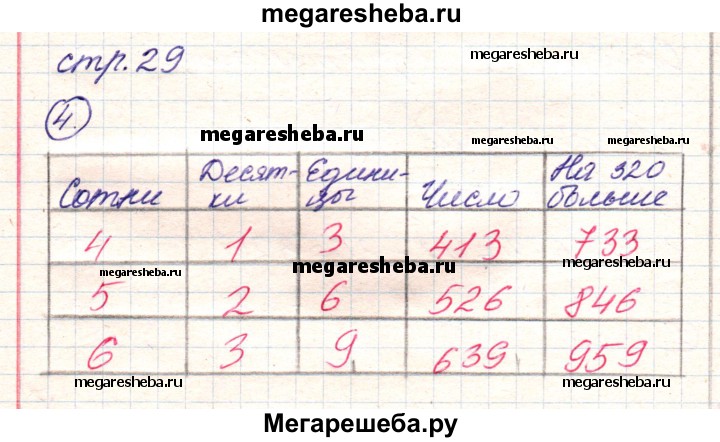 megaresheba.ru
стр. 29
megaresheba.ru
4.
megaresheba.ru
megaresheba.ru
megaresheba.ru
Сотни Десят-ки Едини-цы Число На 320 больше
4 1 3 413 733
megaresheba.ru
megaresheba.ru
megaresheba.ru
5 2 6 526 846
6 3 9 639 959
megaresheba.ru
megaresheba.ru
Мегарешеба.ру